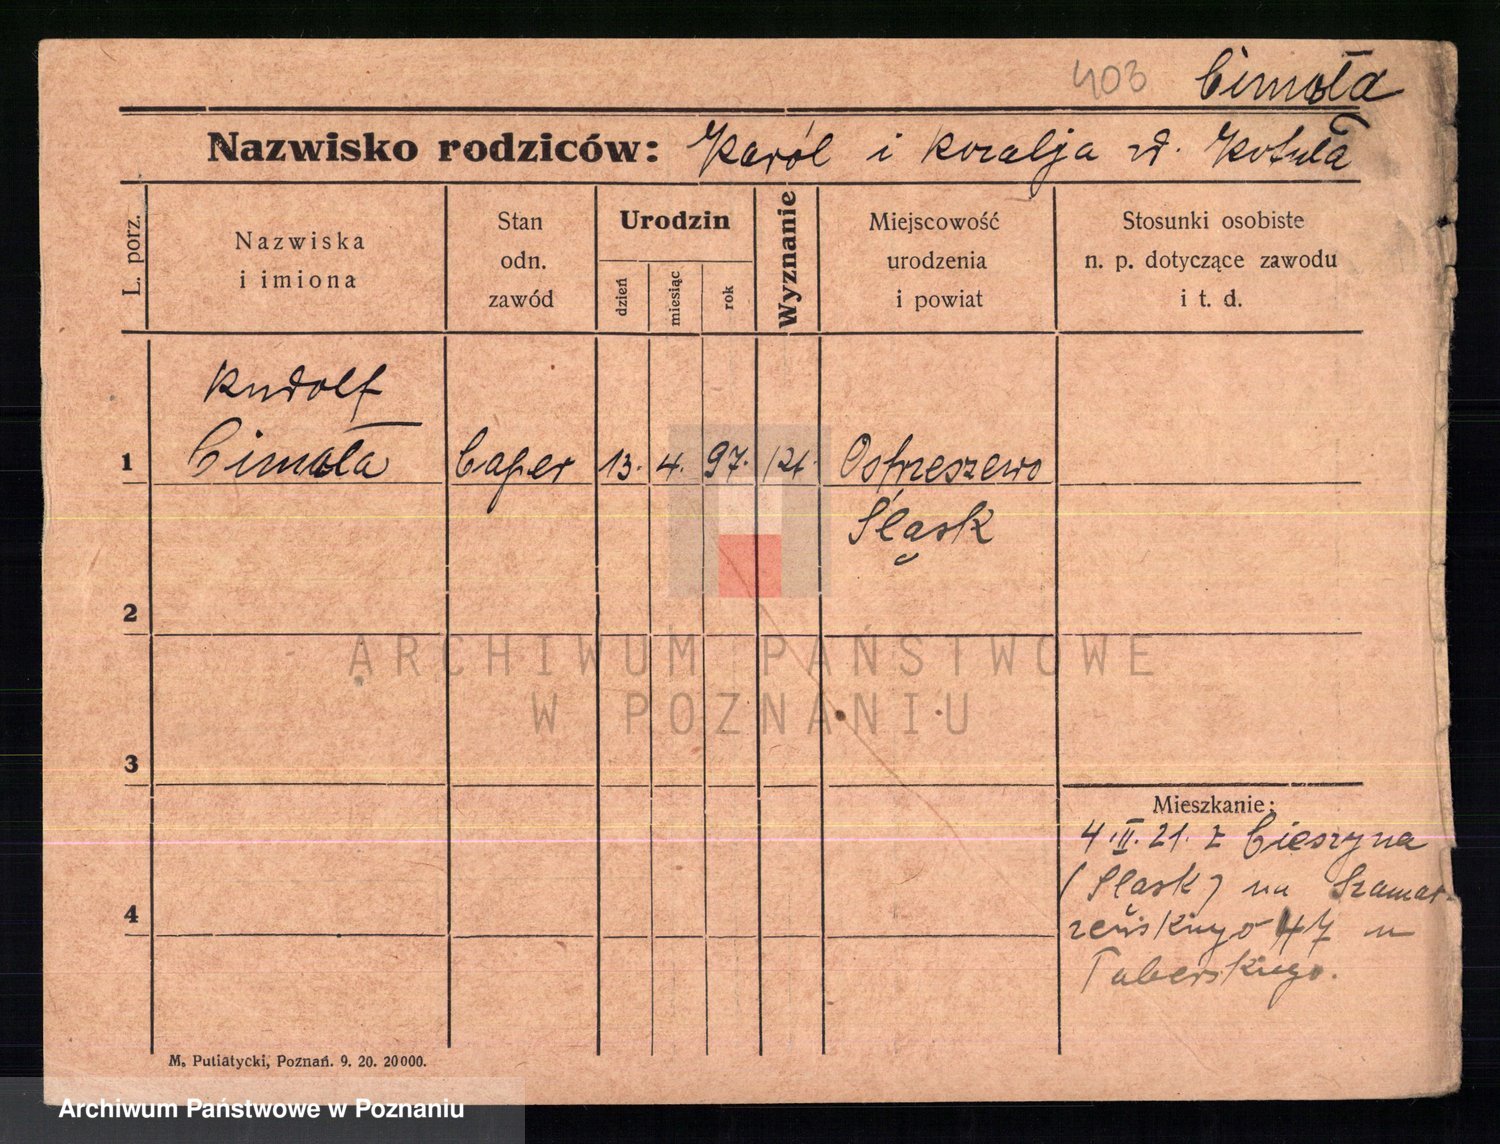 403 Cimała
Nazwisko rodziców: Karól i Rozalja zd. Kotula
L. porz.
Nazwiska
i imiona
Stan
odn.
zawód
Urodzin
dzień
miesiąc
rok
Wyznanie
Miejscowość
urodzenia
i powiat
Stosunki osobiste
n. p. dotyczące zawodu
i t. d.
Rudolf
1 Cimała 13. 4. 97. Ostrzeszewo
Śląsk
2
ARCHIWUM PAŃSTWOWE
W POZNANIU
3
Mieszkanie:
4.II.21. z Cieszyna
(Śląsk) na Szamar-
4
zewskiego 47 u
Taberskiego.
M. Putiatycki, Poznań. 9. 20. 20000.
Archiwum Państwowe w Poznaniu